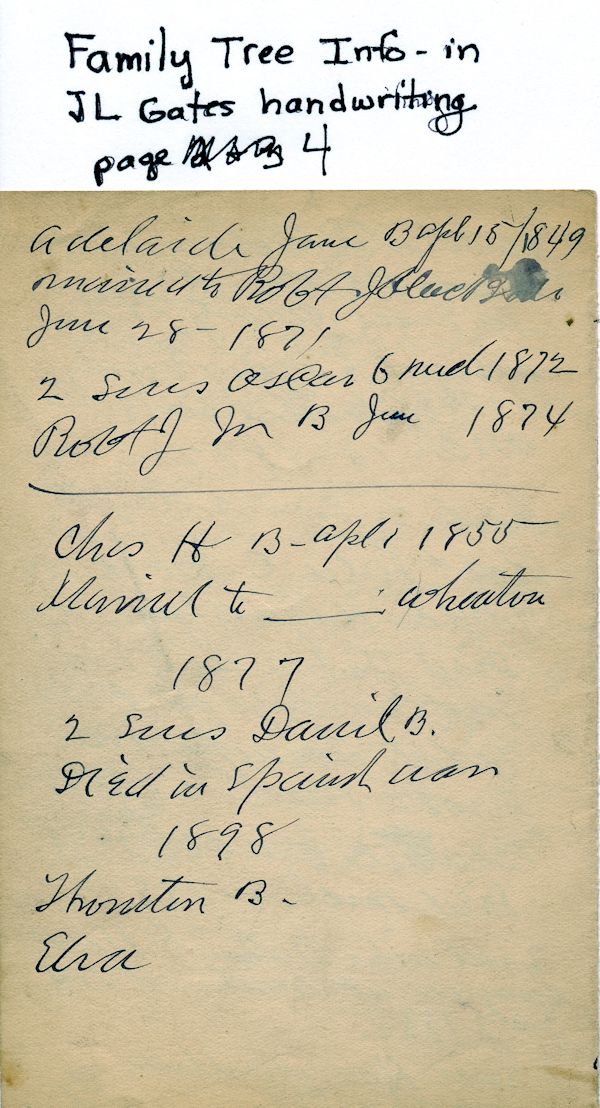 Family Tree Info - in
JL Gates handwriting
page 4
Adelaide Jane B Apl 15/1849
married to Robt J
June 28 - 1871
2 Sons Oscar 1872
Robt J Jr B June 1874
Chas H B - Apl 1 1855
Married to ______ Wheaton
1877
2 Sons Daniel B.
Died in Spanish war
1898
Thornton B -
Elva